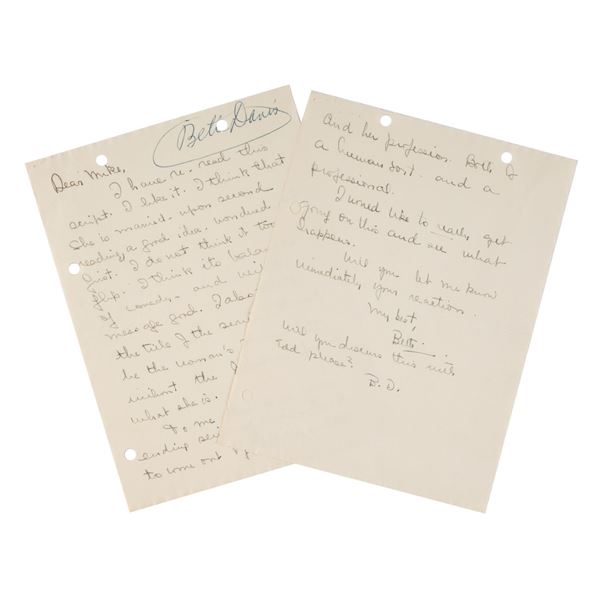 Bette Davis
Dear Mike,
I have re-read this
script. I like it. I think that
she is married - upon second
reading a good idea. wondered
first. I do not think it too
flip. I think its balan
of comedy - and
message good. I also
the title of the
be the woman's
without the
what she is.
To me
ending
to come out
And her profession. Both of
a human sort - and a
professional.
I would like to really get
going on this and see what
happens.
Will you let me know
immediately your reaction.
My best,
Bette
Will you discuss this with
Tod please?
B.D.